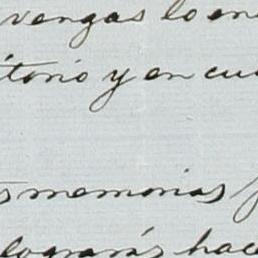 vengas lo en
itorio y en cu
s memorias
lograrás hac